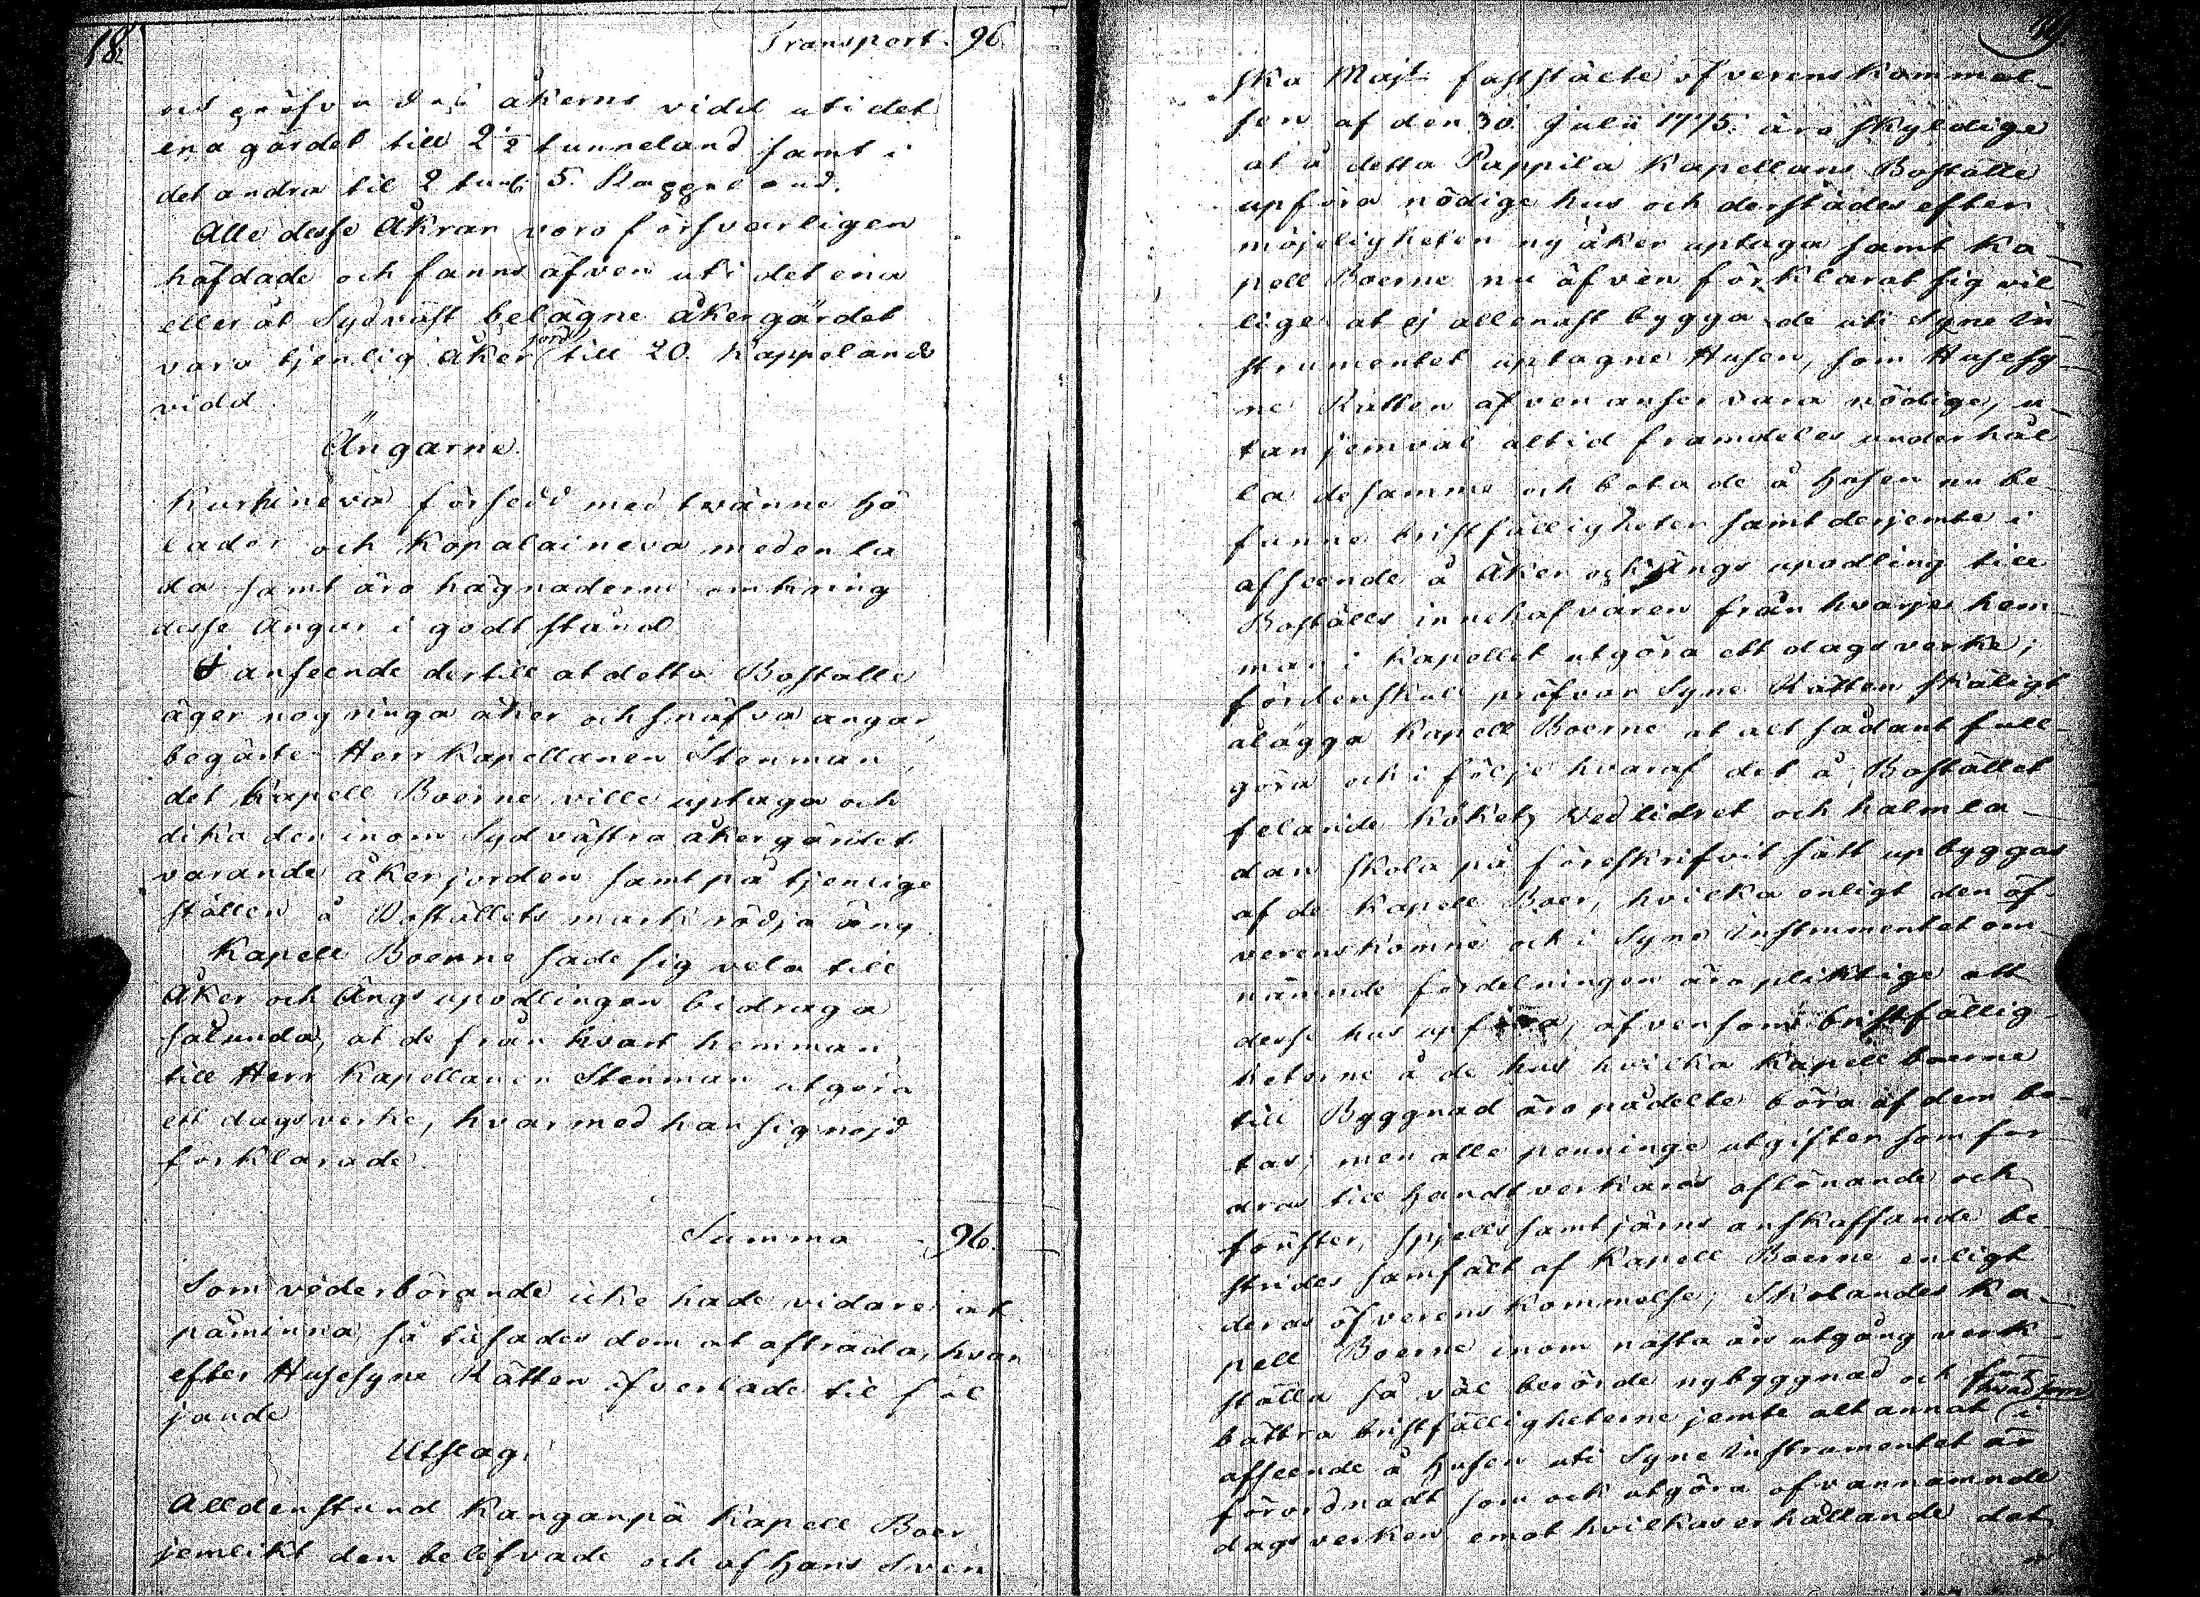 18.
Transport. 96.
åkerns vidd uti det
ena gärdet till 2 1/2 tunneland samt i
det andra til 2 tunl 5. Kappeland.
Alle desse Åkrar voro försvarligen
häfdade och fanns äfven uti det ena
eller åt Sydväst belägne åkergärdet
vara tjenlig åker jord till 20. Kappelands
vidd
Ängarne.
Kurkineva försedd med twänne hö
lador och Kopalaineva med en la
da samt äro hägnaderne omkring
desse Ängar i godt stånd
I anseende dertill at detta Boställe
äger nog ringa åker och snäfva ängar,
begärte Herr Kapellanen Stenman,
det Kapell Boerne ville uptaga och
dika den inom Sydvästra åkergärdet
varande åkerjorden samt på tjenlige
ställen å Boställets mark rödja äng.
Kapell Boerne sade sig vela till
Åker och Ängs upodlingen bidraga
sålunda, at de från hvart hemman
till Herr Kapellanen Stenman utgöra
ett dagsverke, hvarmed han sig nöjd
förklarade.
Summa 96.
Som vederbörande icke hade vidare at
påminna, så tilsades dem at afträda, hvar
efter Husesyne Rätten öfverlade til föl
jande
Utslag:
Alldenstund Kanganpä Kapell Boer
jemlikt den belefvade och af Hans Sven
19.
ska Majt. faststälte öfverenskommel-
sen af den 30. Julii 1775. äro skyldige
at å detta Pappila Kapellans Boställe
upföra nödige hus och derstädes efter
möjeligheten ny åker uptaga samt Ka-
pell Boerne nu äfven förklarat sig vil
lige at ej allenast bygga de uti Syne In
strumentet uptagne Husen, som Husesy-
ne Rätten äfven anser vara nödige, u-
tan jemväl altid framdeles underhål
la desamme och bota de å husen nu be-
funne bristfälligheter samt derjemte i
afseende å Åker och Ängs upodling till
Boställs innehafvaren från hvarje hem-
man i Kapellet utgöra ett dagsverke;
fördenskul pröfvar Syne Rätten skäligt
ålägga Kapell Boerne at alt sådant full-
göra och i följe hvaraf det å Bostället
felande Köket, Vedlidret och halmla-
dan skola på föreskrifvit sätt upbyggas
af de Kapell Boer, hvilka enligt den öf-
verenskomne och i Syne Instrumentet om-
nämnde fördelningen äro pliktige att
desse hus upföra, äfvensom bristfällig-
heterne å de hus hvilka Kapell boerne
till Byggnad äro pådelte böra af dem bo-
tas; men alle penninge utgifter som for
dras till Handtverkares aflönande och
fönster, spjells samt järns anskaffande be-
strides samfält af Kapell Boerne enligt
deras öfverenskommelse; Skolandes Ka-
pell Boerne inom nästa års utgång verk-
ställa så väl berörde nybyggnad och för
bättra bristfälligheterne jemte alt annat hvad som i
afseende å husen uti Syne Instrumentet är
förordnadt som ock utgöra ofvannämnde
dagsverken emot hvilkas erhållande det